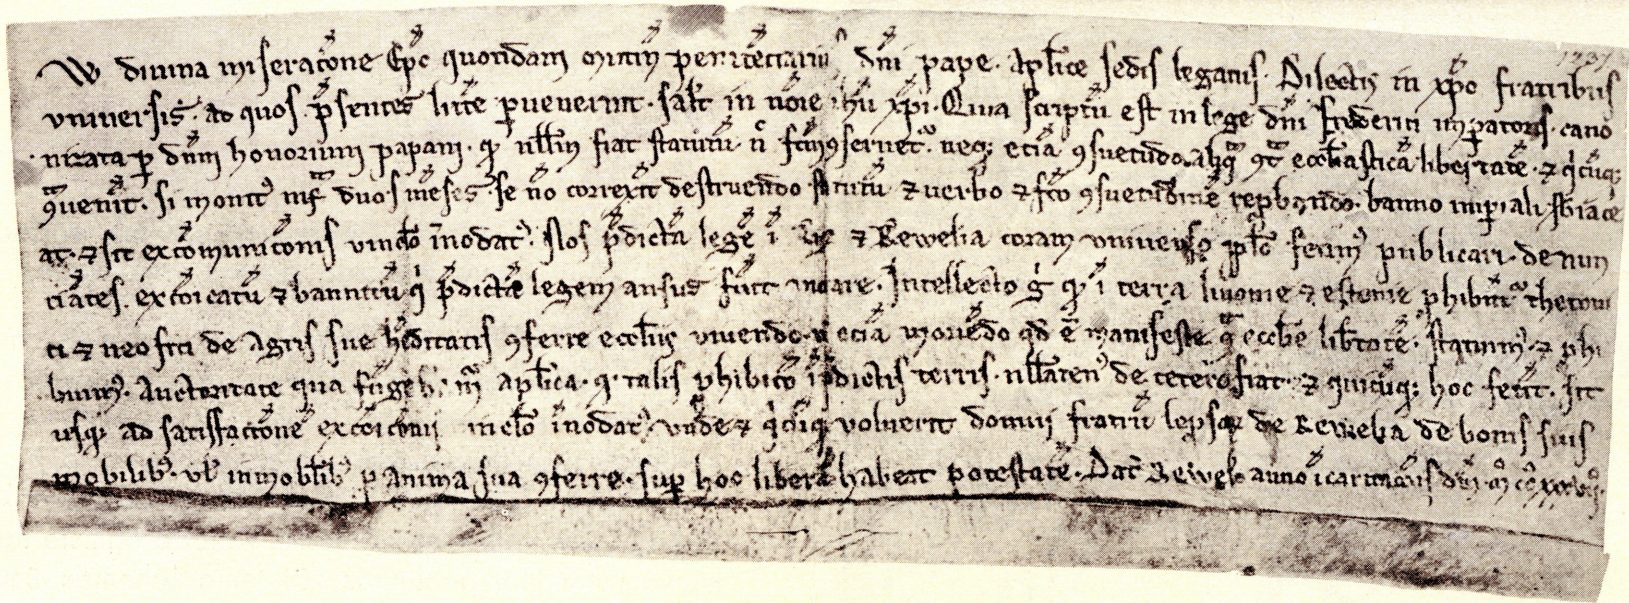 W divina miseracōne Epc quondam Mutin̄ penitēciariꝰ dn̄i pape. Aplīce sedis legatus. Dilectis in xp̄o fratribus
universis. ad quos p̄sentes litt̄e ꝑvenerint. salt̄ in nōīe ihū xp̄i. Quia scriptū est in lege dn̄i frid̄erici imꝑatoris. cano
nizata ꝑ dnm̄ honorium papam. ꝙ nllm̄ fiat statutū. nᶜ fc̄m ꝯservet᷑. neqꝫ eciā ꝯsuetudo aliqᵃ ꝯt̄ eccl̄iasticā libertatē. ⁊ qⁱcūqꝫ
ꝯᵃvenīt. si monitꝰ infᵃ duos mēses se nō correxīt destruendo statutū ⁊ verbo ⁊ fc̄o ꝯsuetudinē reꝓbando. banno imꝑiali sbiace
at. ⁊ sit excōmunicōnis vincl̄o īnodat᷑. Nos p̄dictā legē ī ⁊ Rewelia coram universo pp̄lo fecimꝰ publicari. denun
ciātes. excōīcatū ⁊ bannitū qⁱ p̄dictā legem ausus fūit violare. Intellecto gͥ ꝙ ī terra livonie ⁊ estonie ꝓhibūt᷑ theotoni
ci ⁊ neofiti de agris sue hēditatis ꝯferre eccl̄iis vivendo. ł eciā moriēdo qd̄ ē manifeste ꝯᵃ eccl̄ie lib̄tatē. statuimꝰ ⁊ ꝓhi
bemꝰ. Auctoritate qua fūgimʳ aplīca. ꝙ talis ꝓhibicō ī p̄dictis terris. nllāten̄ꝰ de cetero fiat. ⁊ quicūqꝫ hoc fec̄it. sit
usqꝫ ad satisfactionē excōīconis vincl̄o īnodat᷑. vn̄de ⁊ qⁱcūqꝫ voluerit domui fratrū lep̄soꝝ de Rewelia de bonis suis
mobilibꝰ. vl̄ inmobl̄ibꝰ ꝓ anima sua ꝯferre. suꝑ hoc liberā habeat potestatē. Dat̄ Rewel̄ anno īcarnacōnis dn̄i. mͦ ccͦ xxxviiͦ.